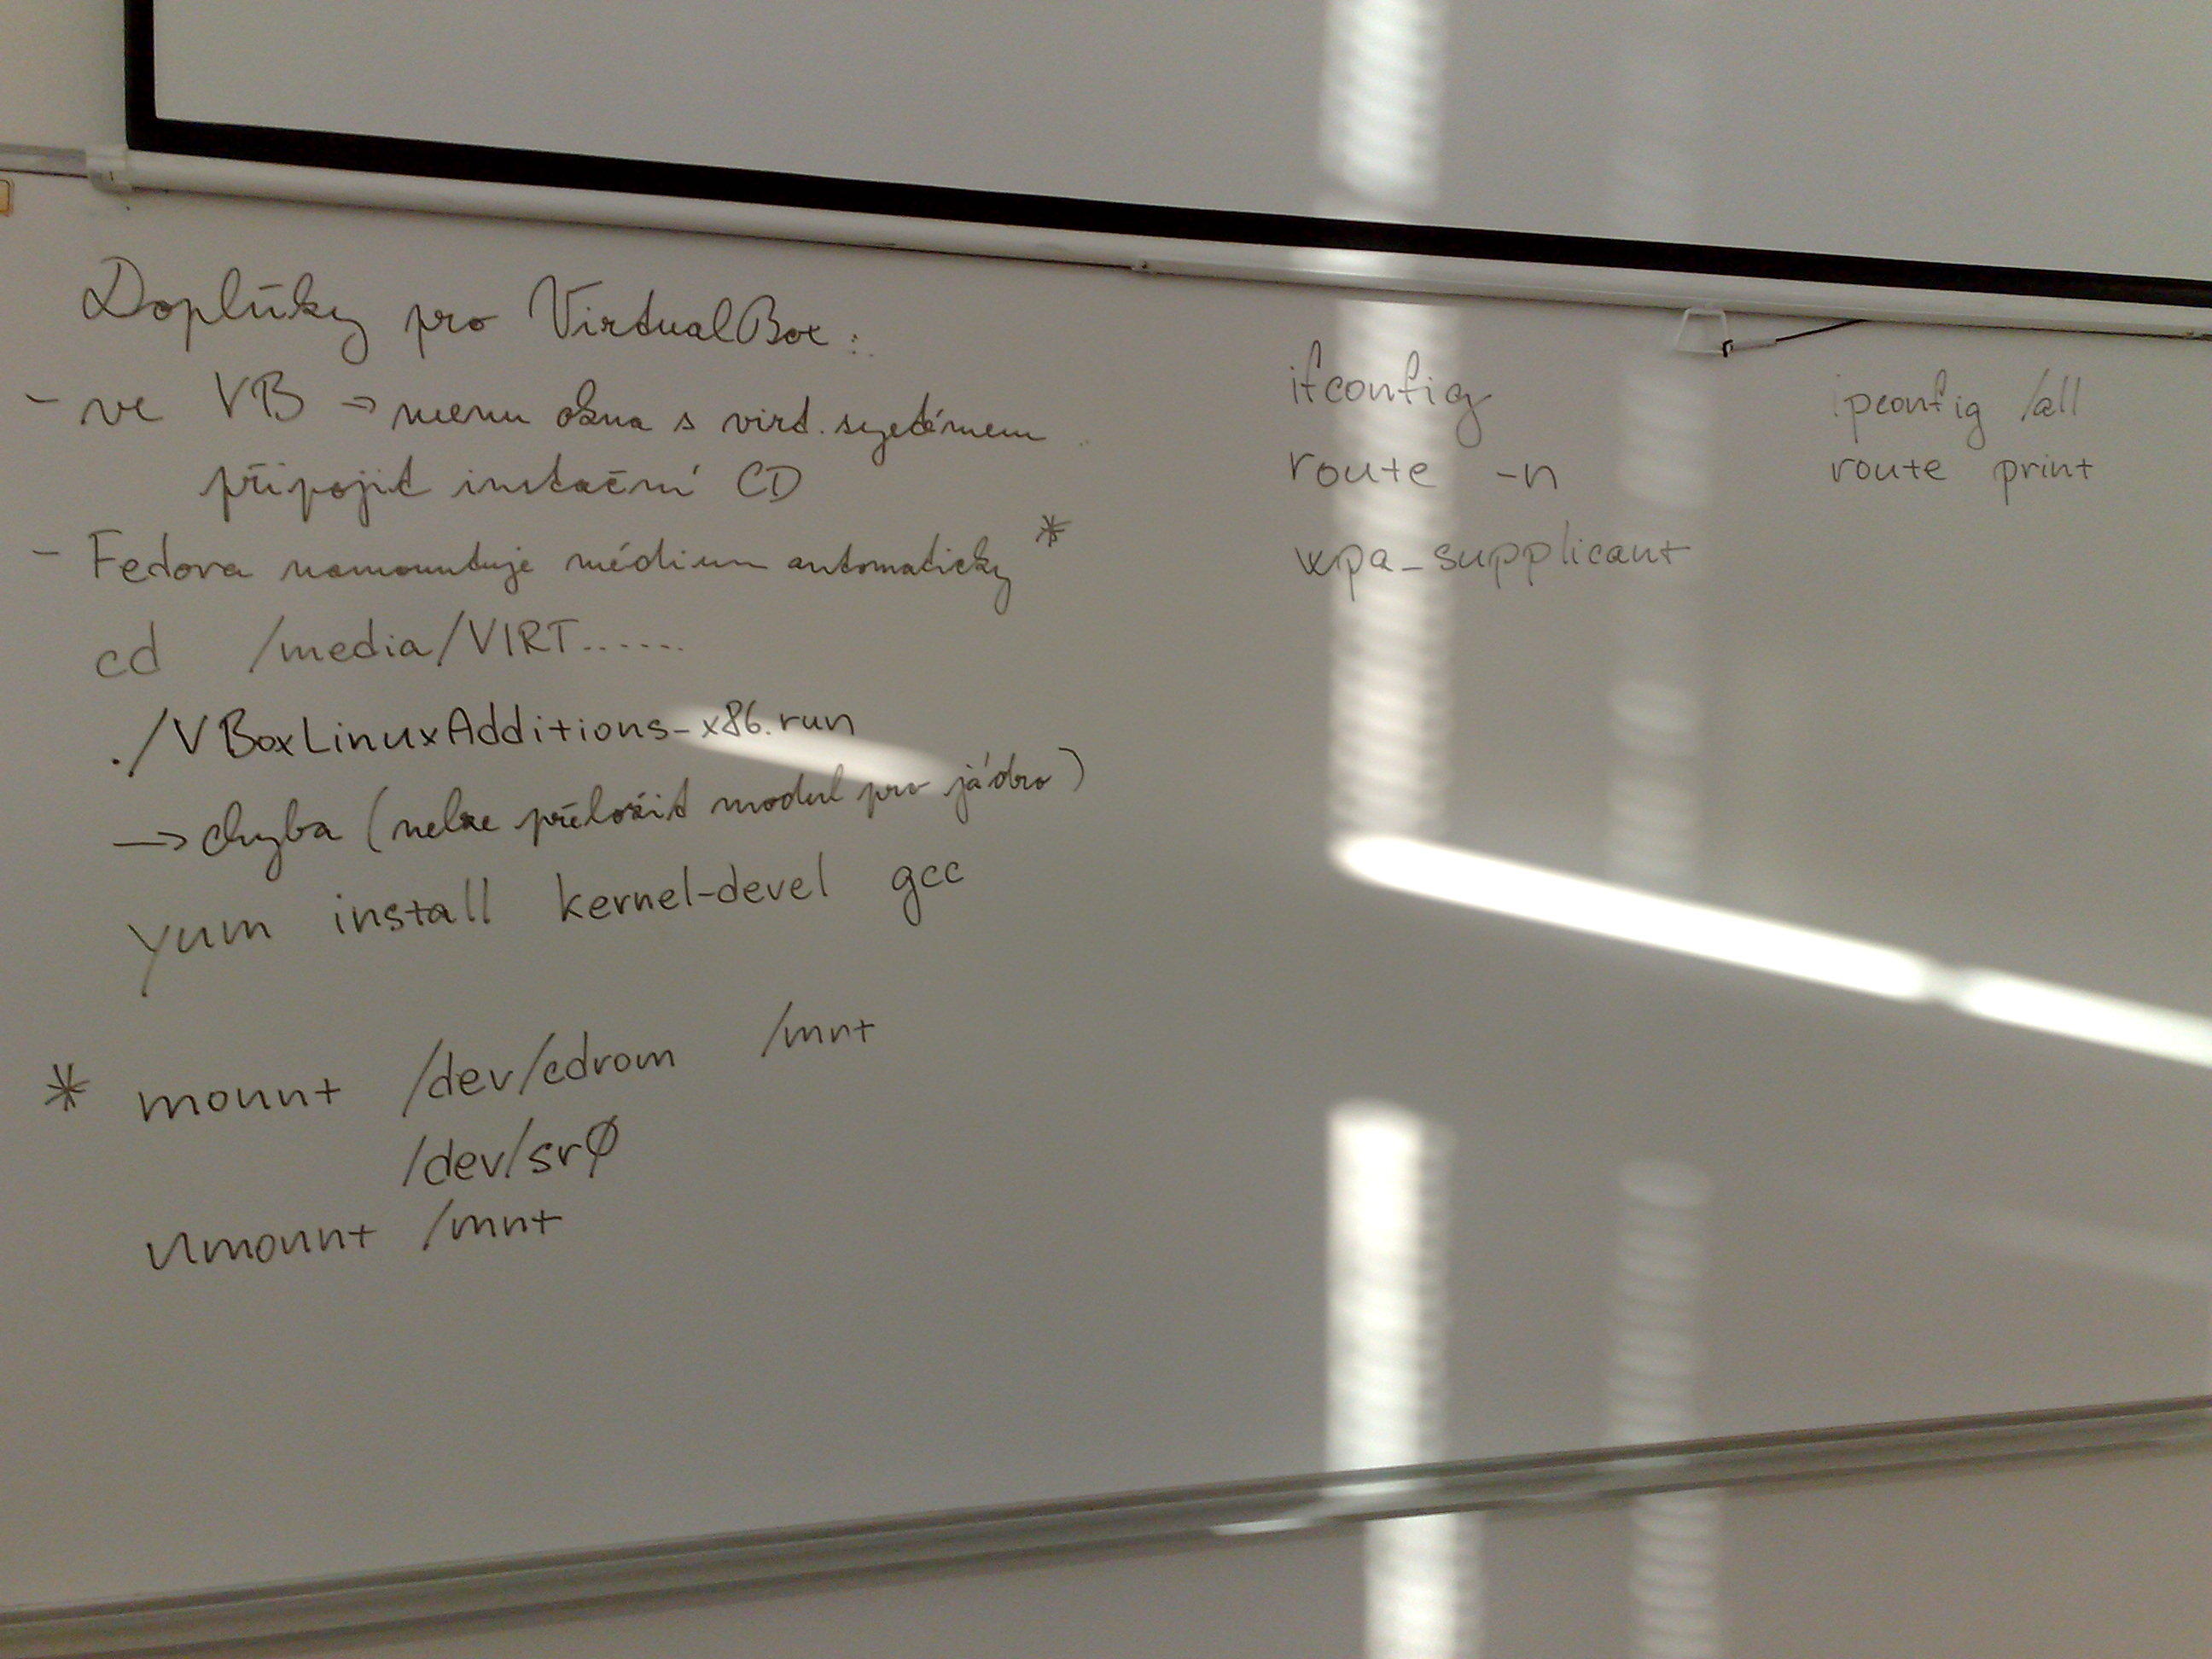 Doplňky pro VirtualBox:
- ve VB → menu okna s virt. systémem
připojit instační CD
- Fedora namountuje médium automaticky *
cd /media/VIRT......
./VBoxLinuxAdditions-x86.run
→ chyba (nelze přeložit modul pro jádro)
yum install kernel-devel gcc
* mount /dev/cdrom /mnt
/dev/sr0
umount /mnt
ifconfig
route -n
wpa_supplicant
ipconfig /all
route print